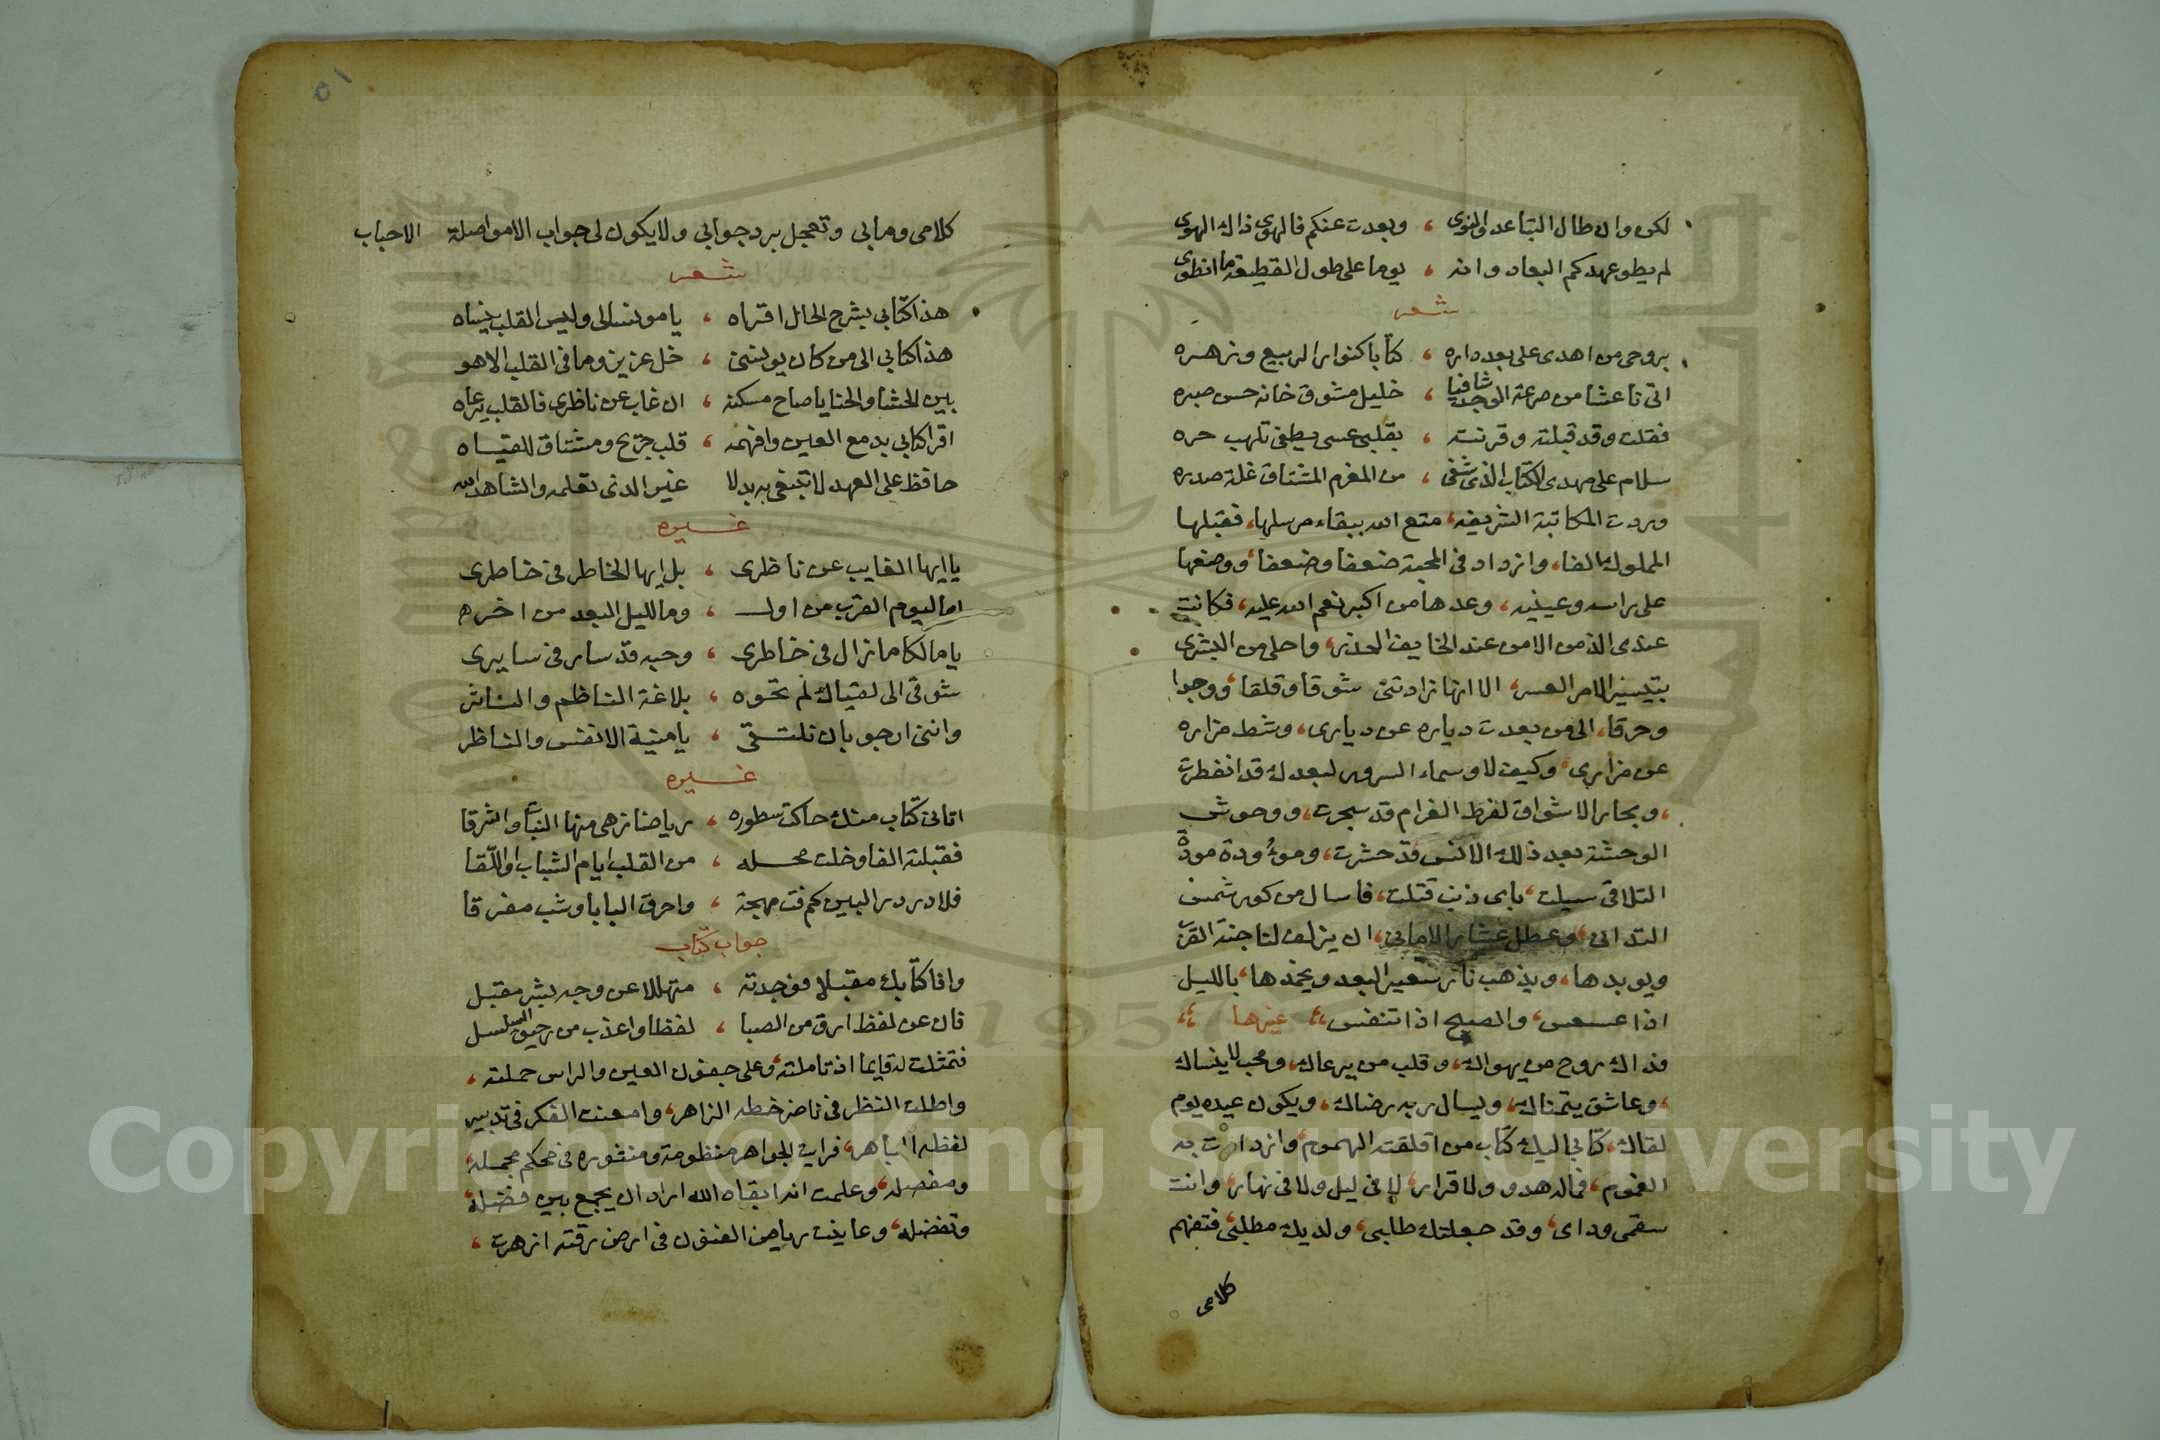 لكن وان طال التباعد والنوى ، وبعدت عنكم فالهوى ذاك الهوى
لم يطو عهدكم البعاد وانه ، يوما على طول القطيعة ما انطوى
شعر
بروحي من اهدى على بعد داره ، كتابا كنوار الربيع وزهره
اتى ناعشا من صرعة الوجد شافيا ، خليل مشوق خانه حسن صبره
فقلت وقد قبلته وقرنته ، بقلبي عسى يطفى تلهب حره
سلام على مهدى الكتاب الذى شفى ، من المغرم المشتاق غلة صدره
وردت المكاتبة الشريفه، متع الله ببقاء مرسلها، فقبلها
المملوك الفا، وازداد في المحبة ضعفا وضعفا، ووضعها
على راسه وعينيه، وعدها من اكبر نعم الله عليه، فكانت
عندى الذ من الامن عند الخايف الحذر، واحلى من البشرى
بتيسير الامر العسر، الا انها زادتنى شوقا وقلقا، ووجدا
وحرقا، الى من بعدت دياره عن ديارى، وشط مزاره
عن مزارى، وكيف لا وسماء السرور لبعدك قد انفطرت
، وبحار الاشواق لفرط الغرام قد سجرت، ووحوش
الوحشة بعد ذلك الانس قد حشرت، وموؤدة مودة
التلاقي سيلت، باى ذنب قتلت، فاسال من كور شمس
التدانى، وعطل عشار الامانى، ان يزلف لنا جنة القرب
ويوبدها، ويذهب نار سعير البعد ويخمدها، بالليل
اذا عسعس، والصبح اذا تنفس، غيرها
فداك روح من يهواك، وقلب من يرعاك، ومحب لا ينساك
، وعاشق يتمناك، ويسال ربه رضاك، ويكون عيده يوم
لقاك، كتابي اليك كتاب من اقلقته الهموم، وازدادت به
الغموم، فماله هدو ولا قرار، لا في ليل ولا في نهار، وانت
سقمى وداى، وقد جعلتك طلبى، ولديك مطلبى، فتفهم
كلامى
٥١
كلامى ومابى وتعجل برد جوابي ولا يكون لى جواب الا مواصلة الاحباب
شعر
هذا كتابي بشرح الحال اقراه ، يا مونسا لى وليس القلب ينساه
هذا كتابي الى من كان يونسنى ، خل عزيز وما في القلب الا هو
بين الحشا والحنايا صاح مسكنه ، ان غاب عن ناظرى فالقلب يرعاه
اقرا كتابي بدمع العين وافهمه ، قلب جريح ومشتاق للقياه
حافظ على العهد لا تبتغى به بدلا غير الذى تعلمه والشاهد الله
غيره
يا ايها الغايب عن ناظرى ، بل ايها الخاطر في خاطرى
اما ليوم القرب من اول ، وما لليل البعد من اخره
يا مالكا مازال في خاطرى ، وحبه قد سار في سايرى
شوقى الى لقياك لم تحوه ، بلاغة الناظم والناثر
واننى ارجو بان نلتقى ، يا منية الانفس والناظر
غيره
اتانى كتاب منك حاكت سطوره ، رياضا زهى منها النبات واشرقا
فقبلته الفا وخلت محله ، من القلب ايام الشباب او اللقا
فلا در در البين كم فت مهجة ، واحرق البابا وشب مفرقا
جواب كتاب
وافا كتابك مقبلا فوجدته ، متهللا عن وجه بشر مقبل
فان عن لفظ ارق من الصبا ، لفظا واعذب من رحيق السلسل
فتمثلت له قايما اذ تاملته، وعلى جفون العين والراس حملته ،
واطلت النظر في ناضر خطه الزاهر، وامعنت الفكر في تدبير
لفظه الباهر، فرايت الجواهر منظومة ومنثوره في محكم مجمله،
ومفصله، وعلمت انه ابقاه الله اراد ان يجمع بين فضله،
وتفضله، وعاينت رياض الفنون في ارض رقته ازهرت ،
Copyright © King Saud University
1957